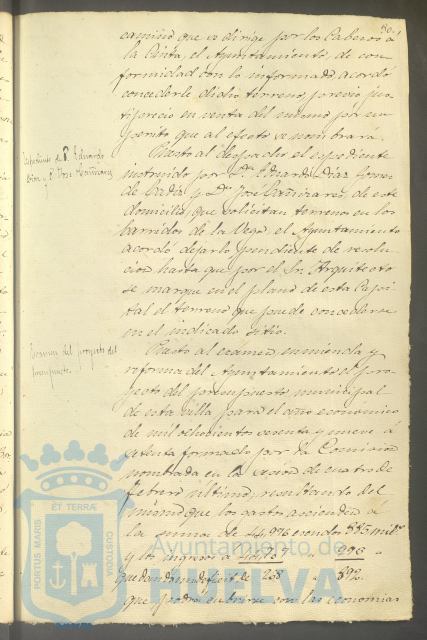 50
camino que se dirige por los Cabezos á
la Cinta, el Ayuntamiento, de con
formidad con lo informado, acordó
concederle dicho terreno, previo jus
tiprecio en venta del mismo por un
perito que al efecto se nombrará.
Expediente de D. Eduardo
Diaz y D. José Cañizares
Puesto al despacho el expediente
instruido por D. Eduardo Diaz
de Cadiz y D. José Cañizares, de este
domicilio, que solicitan terreno en los
barridos de la Vega, el Ayuntamiento
acordó dejarlo pendiente de resolu
cion hasta que por el Sr. Arquitecto
se marque en el plano de esta Capi
tal el terreno que puede concederse
en el indicado sitio.
del proyecto del
presupuesto
Puesto al exámen, enmienda y
reforma del Ayuntamiento el pro
yecto del presupuesto municipal
de esta villa para el año economico
de mil ochocientos sesenta y nueve á
setenta formado por la Comision
nombrada en la sesion de cuatro de
febrero último, resultando del
mismo que los gastos ascienden á
la suma de escudos 595 mil.s
y los ingresos á
quedando un deficit de
que podrá cubrirse con las economias
PORTUS MARIS ET TERRAE CUSTODIA
Ayuntamiento de
HUELVA